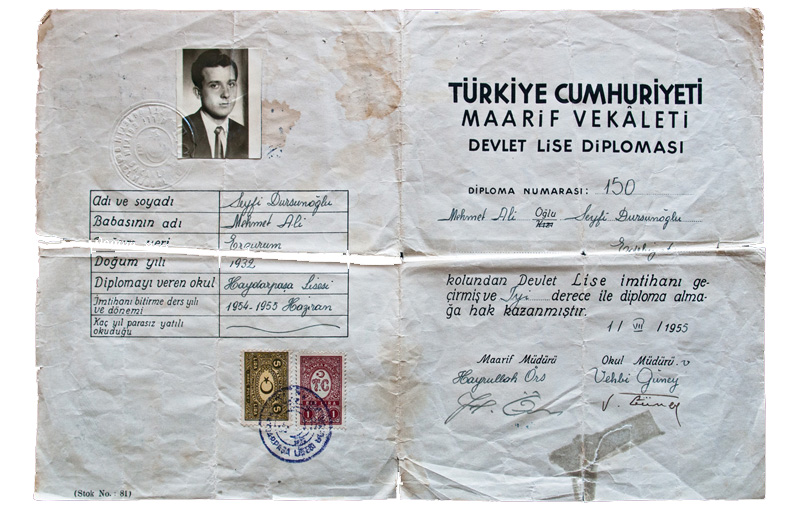 Adı ve soyadı Seyfi Dursunoğlu
Babasının adı Mehmet Ali
yeri Erzurum
Doğum yılı 1932
Diplomayı veren okul Haydarpaşa Lisesi
İmtihanı bitirme ders yılı ve dönemi 1954-1955 Haziran
Kaç yıl parasız yatılı okuduğu
5 5
T.C
1 1
LİSESİ
(Stok No.: 81)
TÜRKİYE CUMHURİYETİ
MAARİF VEKÂLETİ
DEVLET LİSE DİPLOMASI
DİPLOMA NUMARASI: 150
Mehmet Ali Oğlu Kızı Seyfi Dursunoğlu
kolundan Devlet Lise imtihanı ge-
çirmiş ve İyi derece ile diploma alma-
ğa hak kazanmıştır.
1/VII/1955
Maarif Müdürü Okul Müdürü. v
Hayrullah Örs Vehbi Güney
V. Güney